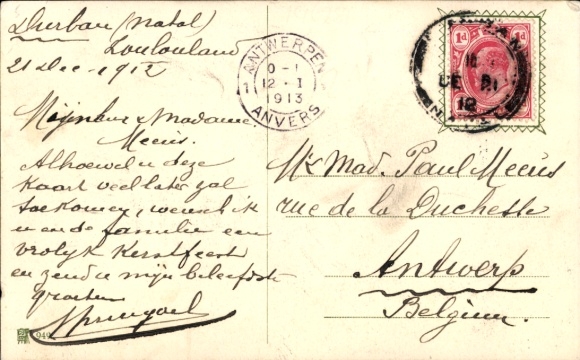 Durban (Natal)
Zoulouland
21 Dec - 1912
Mijnheer & Madame
Meeùs.
Alhoewel u deze
kaart veel later zal
toekomen, wensch ik
u en de familie een
vrolijk Kerstfeest
en zend u mijn beleefdste
groeten
949
ANTWERPEN
0 - 1
1 12 - I 1
1913
ANVERS
1d 1d
DURBAN
DE 21
12
NATAL
Mr Mad. Paul Meeùs
rue de la Duchesse
Antwerp
Belgium.